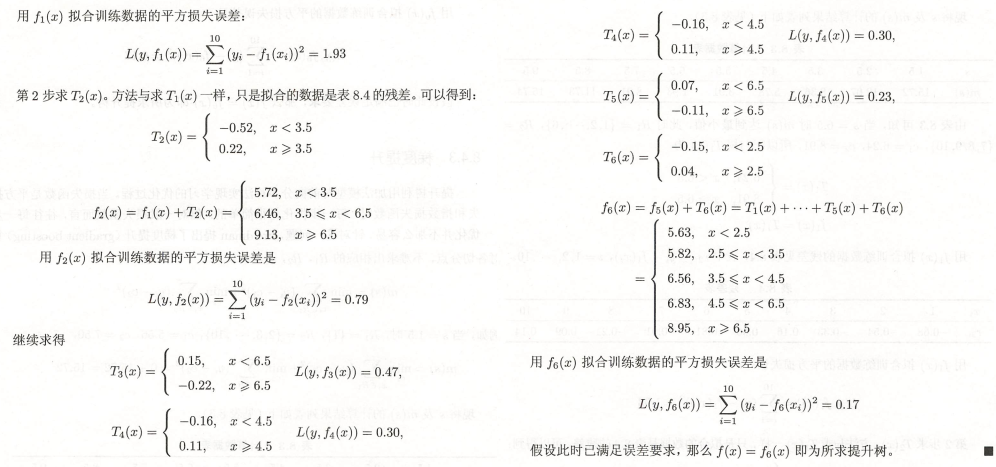 用 f₁(x) 拟合训练数据的平方损失误差:
L(y, f₁(x)) = ∑_{i=1}^{10} (yᵢ − f₁(xᵢ))² = 1.93
第 2 步求 T₂(x)。方法与求 T₁(x) 一样，只是拟合的数据是表 8.4 的残差。可以得到:
T₂(x) = { −0.52, x < 3.5
0.22, x ⩾ 3.5
f₂(x) = f₁(x) + T₂(x) = { 5.72, x < 3.5
6.46, 3.5 ⩽ x < 6.5
9.13, x ⩾ 6.5
用 f₂(x) 拟合训练数据的平方损失误差是
L(y, f₂(x)) = ∑_{i=1}^{10} (yᵢ − f₂(xᵢ))² = 0.79
继续求得
T₃(x) = { 0.15, x < 6.5
−0.22, x ⩾ 6.5 L(y, f₃(x)) = 0.47,
T₄(x) = { −0.16, x < 4.5
0.11, x ⩾ 4.5 L(y, f₄(x)) = 0.30,
T₄(x) = { −0.16, x < 4.5
0.11, x ⩾ 4.5 L(y, f₄(x)) = 0.30,
T₅(x) = { 0.07, x < 6.5
−0.11, x ⩾ 6.5 L(y, f₅(x)) = 0.23,
T₆(x) = { −0.15, x < 2.5
0.04, x ⩾ 2.5
f₆(x) = f₅(x) + T₆(x) = T₁(x) + ⋯ + T₅(x) + T₆(x)
= { 5.63, x < 2.5
5.82, 2.5 ⩽ x < 3.5
6.56, 3.5 ⩽ x < 4.5
6.83, 4.5 ⩽ x < 6.5
8.95, x ⩾ 6.5
用 f₆(x) 拟合训练数据的平方损失误差是
L(y, f₆(x)) = ∑_{i=1}^{10} (yᵢ − f₆(xᵢ))² = 0.17
假设此时已满足误差要求，那么 f(x) = f₆(x) 即为所求提升树。 ■